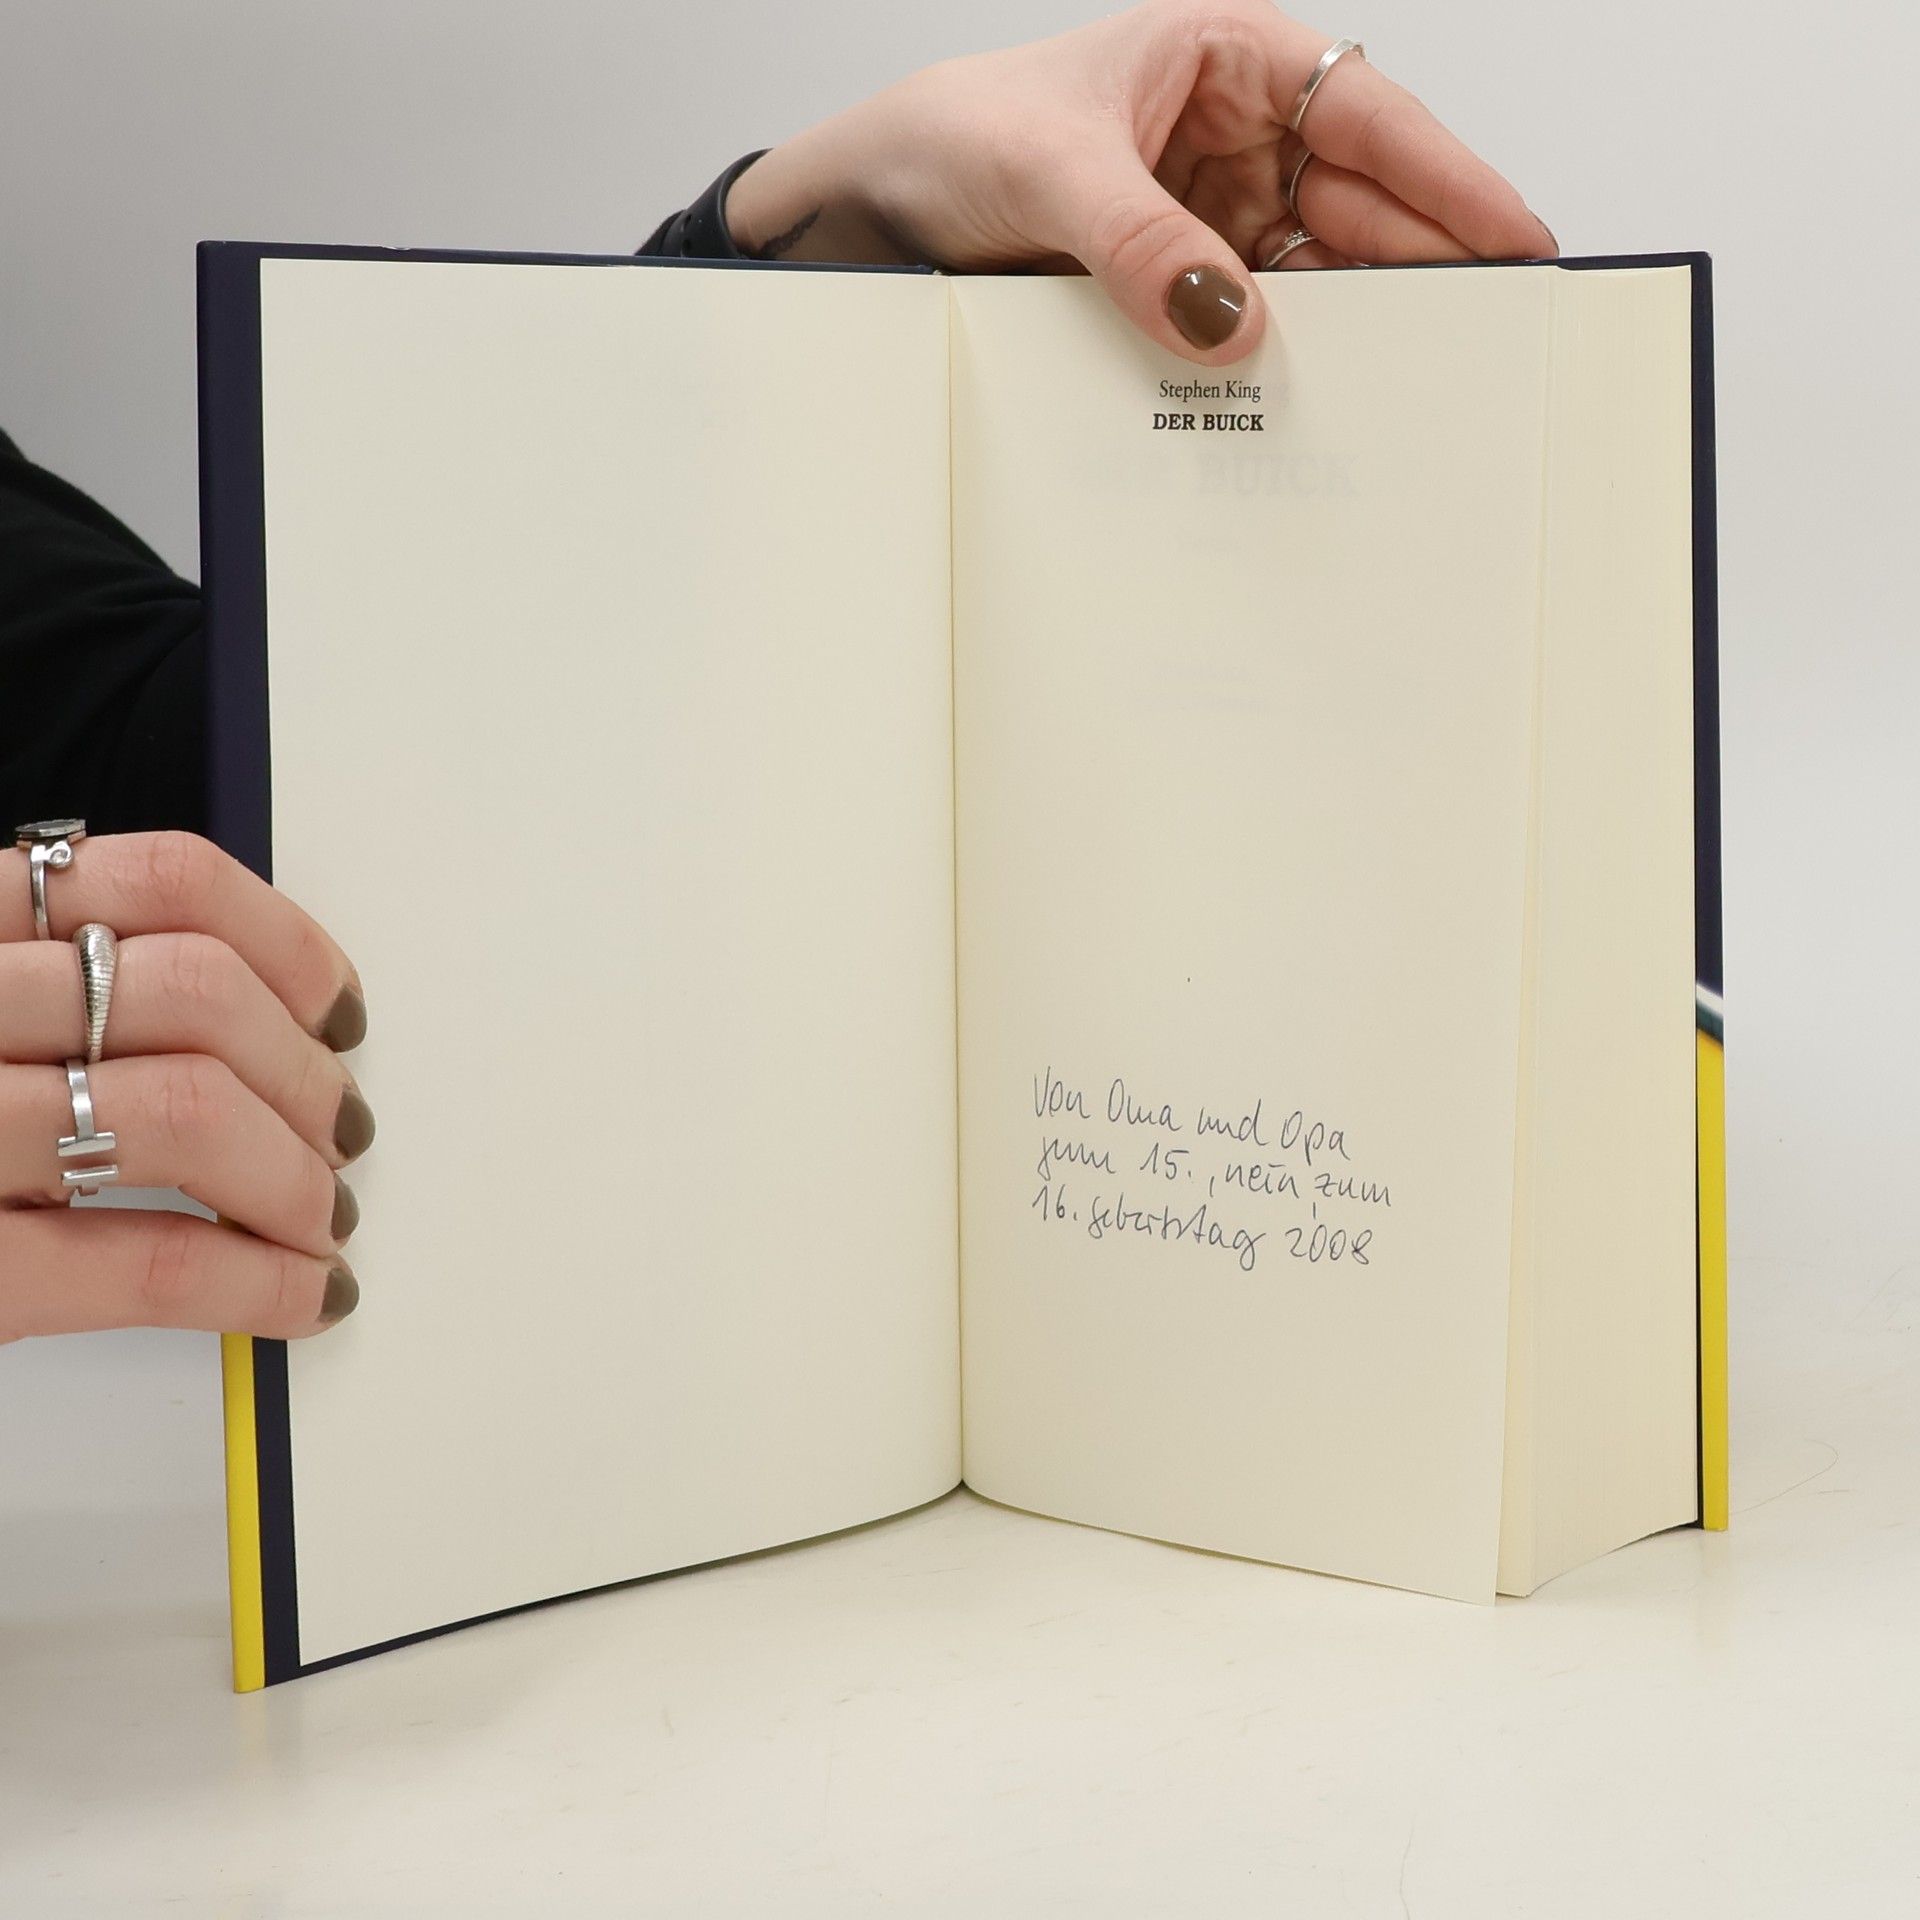 Stephen King
DER BUICK
Von Oma und Opa
zum 15., nein, zum
16. Geburtstag 2008